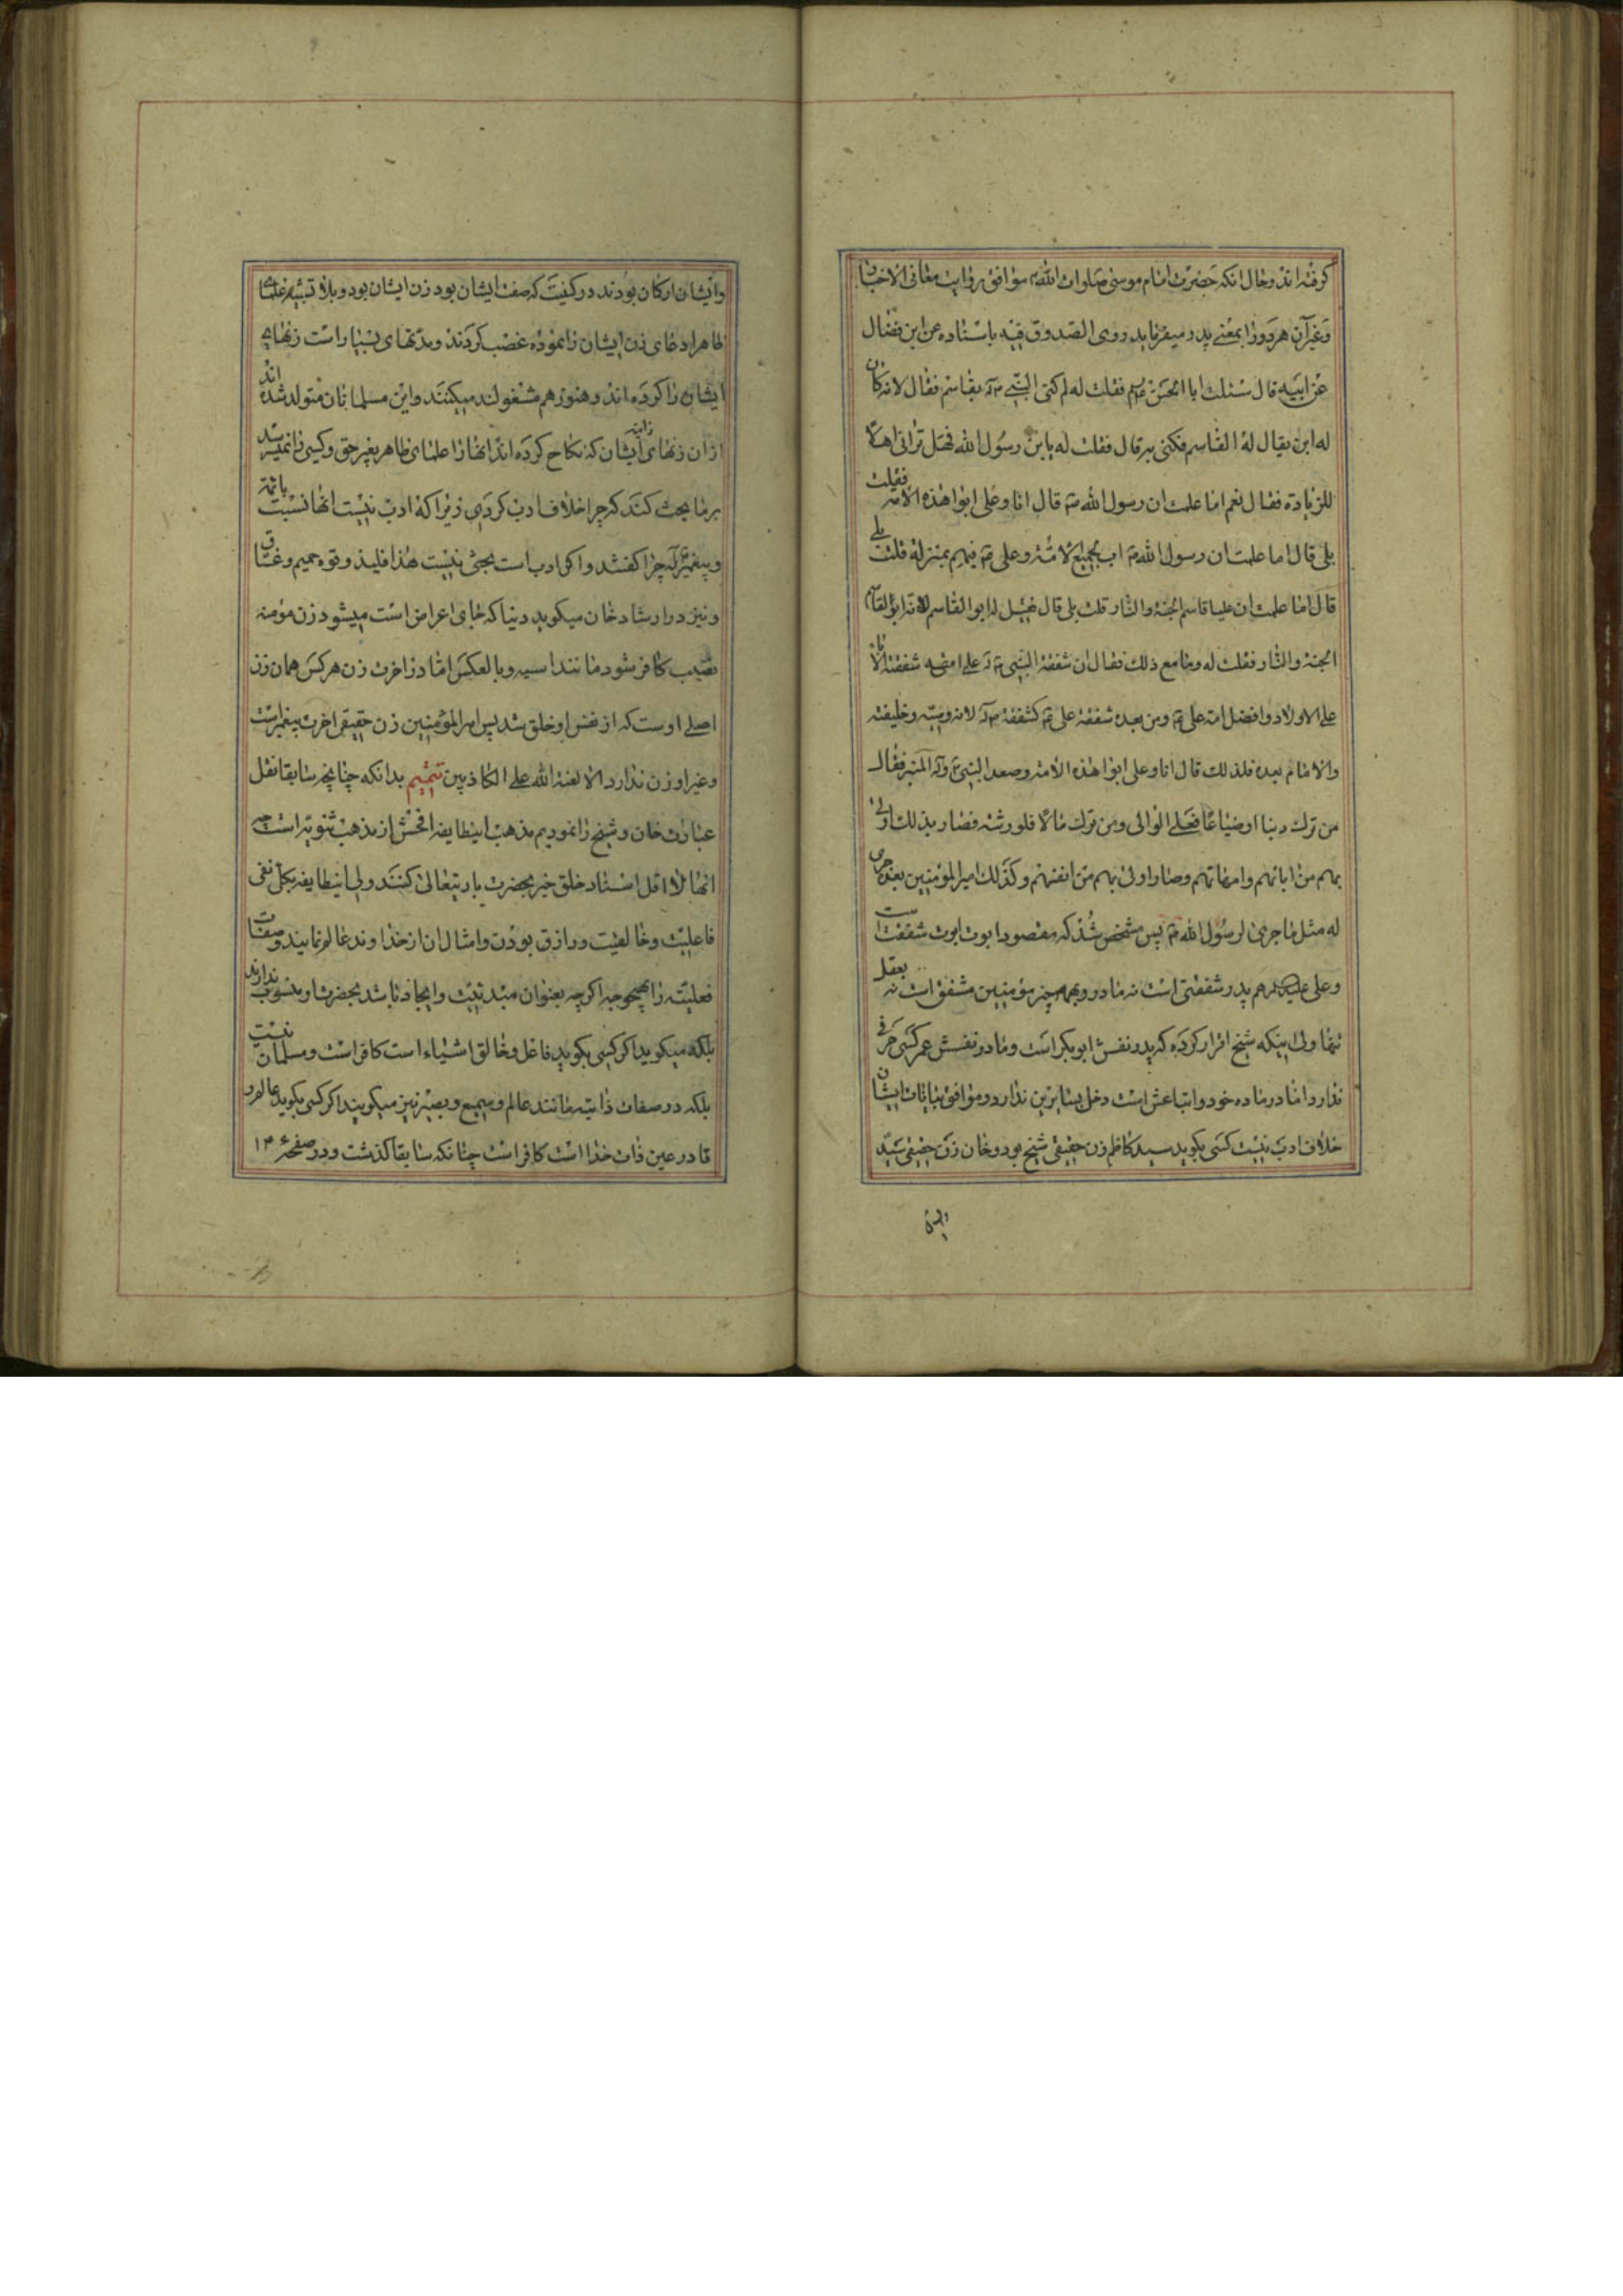 کرفته اند و حال انکه حضرت امام موسی صلوات الله موافق روایت معانی الاخبار
و غیر آن هر دو را بمعنی پدر میفرماید روی الصدوق فیه باسناده عن ابن فضال
عن ابیه قال سئلت ابا الحسن فقلت له لم کنی النبی ص بقاسم فقال لانه کان
له ابن یقال له القاسم فکنی به قال فقلت له یا بن رسول الله فهل ترانی اهلا
للزیادة فقال نعم اما علمت ان رسول الله ص قال انا و علی ابوا هذه الامة فقلت
بلی قال اما علمت ان رسول الله ص اب لجمیع الامته و علی فیهم بمنزلة قلت بلی
قال اما علمت ان علیا قاسم الجنة والنار قلت بلی قال فقیل له ابو القاسم لانه ابو القاسم
الجنة والنار فقلت له وما مع ذلک فقال ان شفقة النبی ص علی امته شفقة الآباء
علی الاولاد و افضل امته علی و من بعده شفقة علی کشفقته ص لانه وصیه و خلیفته
والامام بعده فلذلک قال انا و علی ابوا هذه الامة و صعد النبی ص المنبر فقال
من ترک دینا او ضیاعا فعلی الوالی و من ترک مالا فلورثته فصار بذلک اولی
بهم من ابائهم و امهاتهم و صار اولی بهم من انفسهم و کذلک امیر المؤمنین بعده جری
له مثل ما جری لرسول الله ص پس مشخص شد که مقصود ابوت ابوت شفقت است
و علی علیه السلام هم پدر شفقتی است نه مادر و بهمه مؤمنین مشفق است نه بعقل
تنها ولی اینکه شیخ اقرار کرده که پدر نفسش ابوبکر است و مادر نفسش عمر کسی حرفی
ندارد اما در ماده خود و اتباعش است دخل بسایرین ندارد و موافق بیانات ایشان
خلاف ادب نیست کسی بکوید سید کاظم زن حقیقی شیخ بود و خان زن حقیقی سید
و ایشان ارکان بودند در کفیت که صف ایشان بود زن ایشان بود و بلا تشبیه علمای
ظاهر ادعای زن ایشان را نموده غضب کردند و مدتهای بسیار است زنهای
ایشان را کرده اند و هنوز هم مشغولند میکنند و این مسلمانان متولد شده اند
از ان زنهای زانیه ایشان که نکاح کرده اند انها را علمای ظاهر بغیر حق و کسی را نمیرسد
بر ما بحث کند که چرا خلاف ادب کردی زیرا که ادب نیست انها نسبت بائمه
و پیغمبر که چرا کفتند و اکر ادب است بحثی نیست هذا فلیذوقوه حمیم و غساق
و نیز در ارشاد خان میکوید دنیا که جای اعراض است میشود زن مؤمنه
نصیب کافر شود مانند اسیه و بالعکس اما در اخرت زن هر کس همان زن
اصلی اوست که از نفس او خلق شد پس امیر المؤمنین زن حقیقی اخرت پیغمبر است
و غیر او زن ندارد الا لعنة الله علی الکاذبین تتمیم بدانکه چنانچه سابقا نقل
عبارات خان و شیخ را نمودیم مذهب اینطایفه افحش از مذهب ثنویه است چه
انها لا اقل اسناد خلق خیر بحضرت باریتعالی کنند ولی اینطایفه بکلی نفی
فاعلیت و خالقیت و رازق بودن و امثال ان از خداوند عالم نمایند و صفات
فعلیه را بهیچوجه اکرچه بعنوان مبدئیت و ایجاد باشد بحضرت او منسوب ندارند
بلکه میکوید اکر کسی بکوید فاعل و خالق اشیاء است کافر است و مسلمان نیست
بلکه در صفات ذاتیه مانند عالم و سمیع و بصیر نیز میکویند اکر کسی بکوید عالم و
قادر عین ذات خدا است کافر است چنانکه سابقا کذشت و در صفحهٔ ۱۳